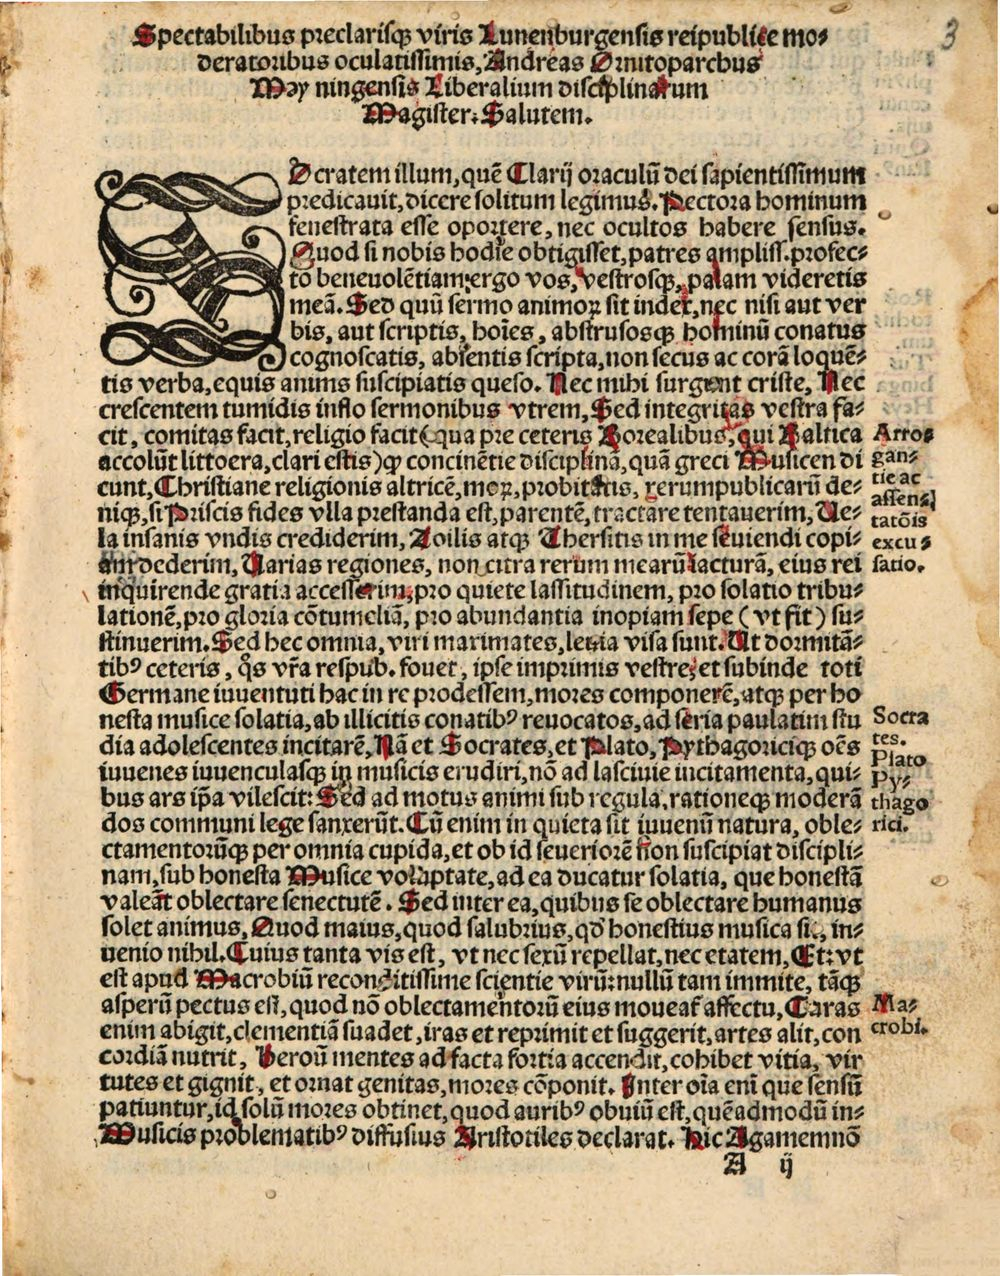 Spectabilibus preclarisqꝫ viris Lunenburgensis reipublice mo⸗
deratoribus oculatissimis, Andreas Ornitoparchus
Mey ningensis Liberalium disciplinarum
Magister. Salutem.
3
SOcratem illum, quē Clarij oraculū dei sapientissimum
predicauit, dicere solitum legimus. Pectora hominum
fenestrata esse oportere, nec ocultos habere sensus.
Quod si nobis hodie obtigisset, patres ampliss. profec⸗
to beneuolētiam ergo vos, vestrosqꝫ, palam videretis
meā. Sed quū sermo animoꝝ sit index, nec nisi aut ver
bis, aut scriptis, hoīes, abstrusosqꝫ hominū conatus
cognoscatis, absentis scripta, non secus ac corā loquē⸗
tis verba, equis animis suscipiatis queso. Nec mihi surgunt criste, Nec
crescentem tumidis inflo sermonibus vtrem, Sed integritas vestra fa⸗
cit, comitas facit, religio facit (qua pre ceteris Borealibus, qui Baltica
accolūt littoera, clari estis) qꝙ concinētie disciplinā, quā greci Musicen di
cunt, Christiane religionis altricē, moꝝ, probitatis, rerumpublicarū de⸗
niqꝫ, si Priscis fides vlla prestanda est, parentē, tractare tentauerim, Ue⸗
la insanis vndis crediderim, Zoilis atqꝫ Thersitis in me seuiendi copi⸗
am dederim, Uarias regiones, non citra rerum mearū iacturā, eius rei
inquirende gratia accesserim, pro quiete lassitudinem, pro solatio tribu⸗
lationē, pro gloria cōtumeliā, pro abundantia inopiam sepe (vt fit) su⸗
stinuerim. Sed hec omnia, viri maximates, leuia visa sunt. Ut dormitā⸗
tibꝰ ceteris, q̄s vr̄a respub. fouet, ipse imprimis vestre, et subinde toti
Germane iuuentuti hac in re prodessem, mores componerē, atqꝫ per ho
nesta musice solatia, ab illicitis conatibꝰ reuocatos, ad seria paulatim stu
dia adolescentes incitarē, Nā et Socrates, et Plato, Pythagoriciqꝫ oēs
iuuenes iuuenculasqꝫ in musicis erudiri, nō ad lasciuie incitamenta, qui⸗
bus ars ip̄a vilescit: Sed ad motus animi sub regula, rationeqꝫ moderā
dos communi lege sanxerūt. Cū enim in quieta sit iuuenū natura, oble⸗
ctamentorūqꝫ per omnia cupida, et ob id seueriorē non suscipiat discipli⸗
nam, sub honesta Musice voluptate, ad ea ducatur solatia, que honestā
valeāt oblectare senectutē. Sed inter ea, quibus se oblectare humanus
solet animus, Quod maius, quod salubrius, qd̄ honestius musica sit, in⸗
uenio nihil. Cuius tanta vis est, vt nec sexū repellat, nec etatem, Et: vt
est apud Macrobiū reconditissime scientie virū: nullū tam immite, tāqꝫ
asperū pectus est, quod nō oblectamentorū eius moueat̄ affectu, Curas
enim abigit, clementiā suadet, iras et reprimit et suggerit, artes alit, con
cordiā nutrit, Heroū mentes ad facta fortia accendit, cohibet vitia, vir
tutes et gignit, et ornat genitas, mores cōponit. Inter oīa enī que sensū
patiuntur, id solū mores obtinet, quod auribꝰ obuiū est, quēadmodū in⸗
Musicis problematibꝰ diffusius Aristotiles declarat. Hic Agamemnō
A ij
Arro⸗
gan⸗
tie ac
assen⸗
tatōis
excu⸗
satio.
Socra
tes.
Plato
Py⸗
thago
rici.
Ma⸗
crobi.